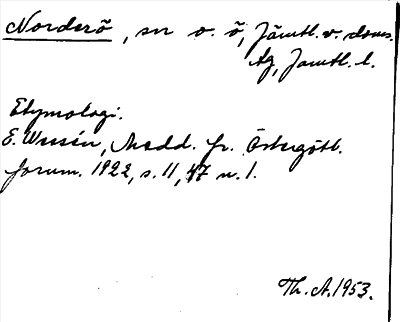 Norderö, sn o. ö, Jämtl. v. doms.
Ag, Jämtl. l.
Etymologi.
E. Wessén, Medd. fr. Östergötl.
fornm. 1922, s. 11, 47 n. 1.
Th. A. 1953.